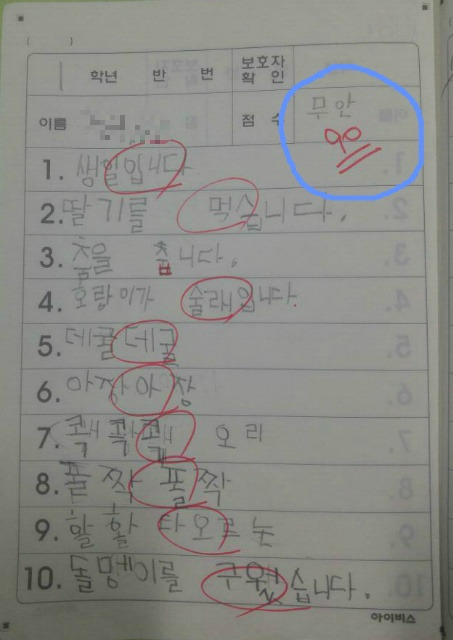 ( )
학년 반 번 보호자 확인
이름 점수 무안 90
1. 생일입니다
2. 딸기를 먹습니다.
3. 춤을 춥니다.
4. 호랑이가 술래입니다.
5. 데굴데굴
6. 아장아장
7. 오리
8. 폴짝 폴짝
9. 활활 타오르는
10. 돌멩이를 구웠습니다.
아이비스